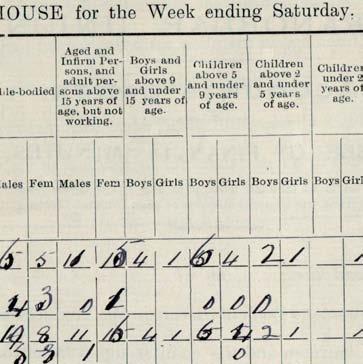 HOUSE for the Week ending Saturday,
ble-bodied
Aged and Infirm Per- sons, and adult per- sons above 15 years of age, but not working.
Boys and Girls above 9 and under 15 years of age.
Children above 5 and under 9 years of age.
Children above 2 and under 5 years of age.
Children under 2 years of age.
ales Fem Males Fem Boys Girls Boys Girls Boys Girls Boy Girl
5 11 4 1 4 2 1 1
4 3 0 1 0 0 0
8 11 4 1 4 2 1 1
3 1 0